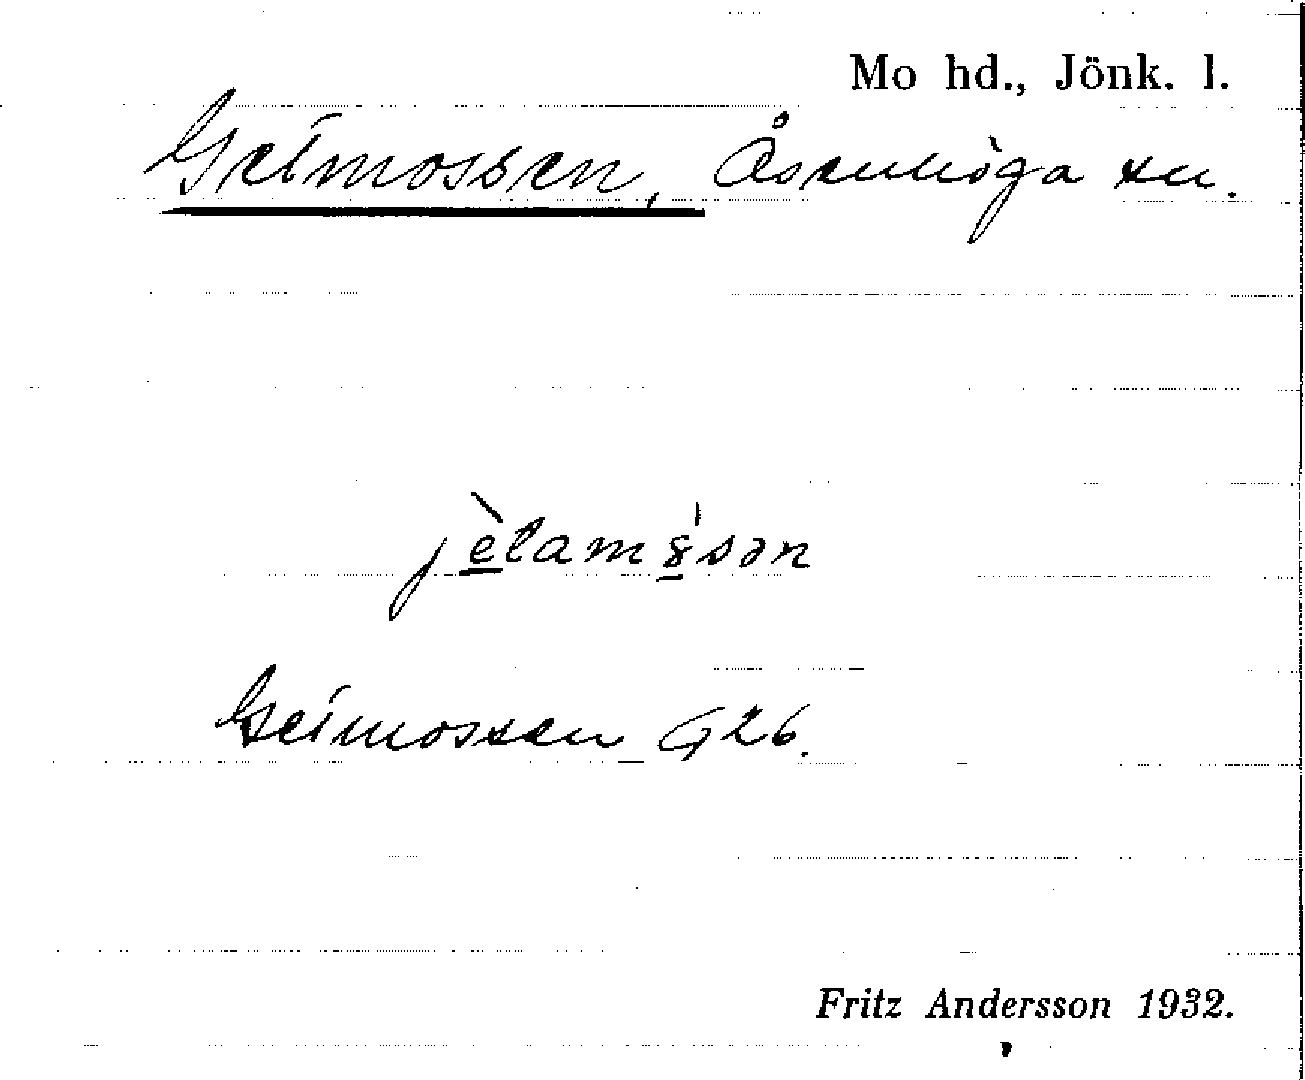 Mo hd., Jönk. l.
Getmossen, Åsenhöga sn.
jètamósən
Getmossen G 26.
Fritz Andersson 1932.